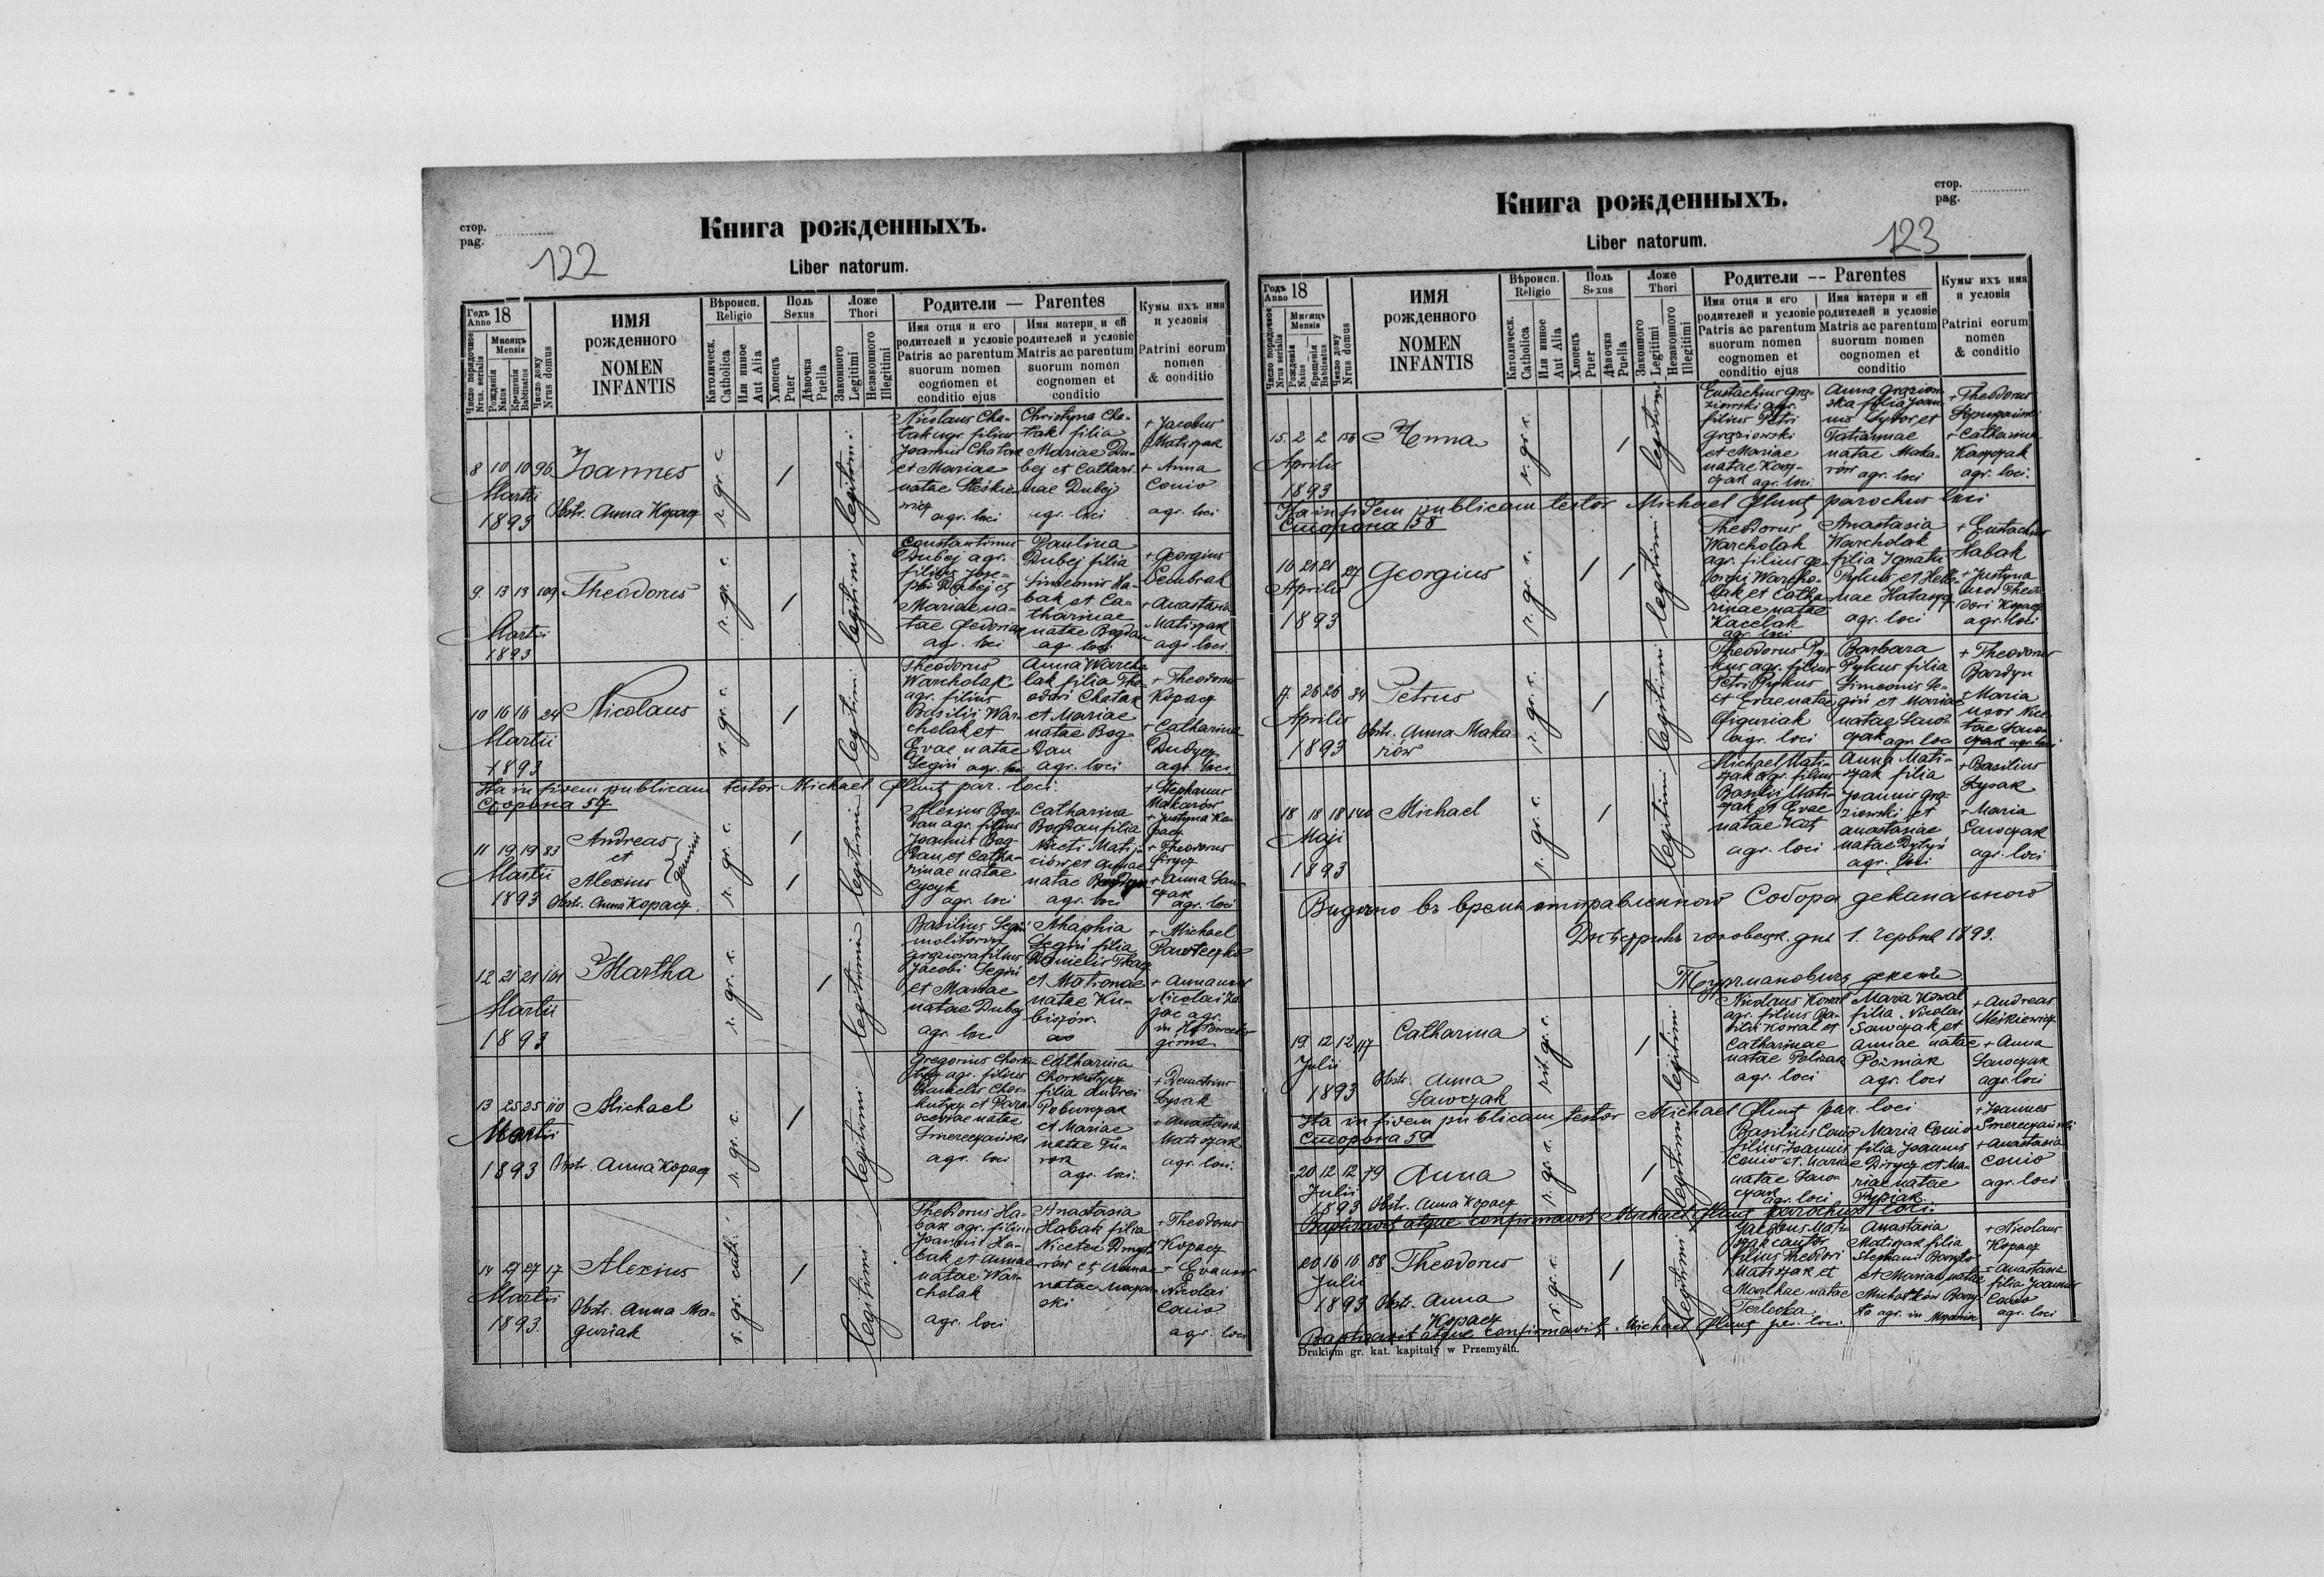 стор.
pag.
122
Книга рожденныхъ.
Liber natorum.
Годъ Anno 18
Число порядочное Nrus. serialis
Мисяць Mensis
Рожденія Natus
Крещенія Babtisatus
Число дому Nrus domus
ИМЯ рожденного
NOMEN INFANTIS
Вѣроисп. Religio
Католическ. Catholica
Или инное Aut Alia
Поль Sexus
Хлопецъ Puer
Дѣвочка Puella
Ложе Thori
Законного Legitimi
Незаконного Illegitimi
Родители — Parentes
Имя отця и его родителей и условіе
Patris ac parentum suorum nomen cognomen et conditio ejus
Имя матери и ей родителей и условіе
Matris ac parentum suorum nomen cognomen et conditio
Кумы ихъ имя и условія
Patrini eorum nomen & conditio
8 10 10 96
Martii
1893
Joannes
Obstr. Anna Kopacz
r. gr. c
legitimi
Nicolaus Cha-
tak agr. filius
Joannis Chatak
et Mariae
natae Meskie-
wicz
agr. loci
Christyna Cha-
tak filia
Mariae Du-
bej et Cathari-
nae Dubej
agr. loci
+ Jacobus
Matiszak
+ Anna
Conio
agr. loci
9. 13 13 109
Martii
1893
Theodorus
r. gr. c.
legitimi
Constantinus
Dubej agr.
filius Jose-
phi Dubej et
Mariae na-
tae Fedoriak
ag. loci
Paulina
Dubej filia
Simeonis Ha-
bak et Ca-
tharinae
natae Bogdan
ag. loci
+ Georgius
Cembrak
+ Anastasia
Matiszak
agr. loci.
10 16 16 24
Martii
1893
Nicolaus
r. gr. c.
legitimi
Theodorus
Warcholak
agr. filius
Basilii War-
cholak et
Evae natae
Segin agr. loci
Anna Warcho-
lak filia Theo-
odori Chatak
et Mariae
natae Bog-
dan
agr. loci
+ Theodorus
Kopacz
+ Catharina
Dubycz
agr. loci
Ita in fidem publicam testor Michael par. loci.
Сторона 57
11 19 19 83
Martii
1893
Andreas
et
Alexius
gemini
Obstr. Anna Kopacz.
r. gr. c.
legitimi
Alexius Bog-
dan agr. filius
Joannis Bog-
dan et Catha-
rinae natae
Cycyk
agr. loci
Catharina
Bogdan filia
Niceti Matij-
ciow et Annae
natae
agr. loci
+ Stephanus
Makarow
+ Justyna Ko-
pacz
+ Theodorus
+ Anna Saw-
czak
agr. loci
12 21 21 101
Martii
1893
Martha
r. gr. c.
legitimi
Basilius Segin
molitor
filius
Jacobi Segin
et Mariae
natae Dubej
agr. loci
Ahaphia
Segin filia
Danielis Tkacz
et Matronae
natae Ku-
biszów.
+ Michael
Pawleczko
+ Anna uxor
Nicolai Za-
jac agr.
in
13 25 25 110
Martii
1893
Michael
Obstr. Anna Kopacz
r. gr. c.
legitimi
Gregorius Chorku-
tycz agr. filius
Danielis Chor-
kutycz et Para-
scevae natae
Smereczański
agr. loci
Catharina
Chorkutycz
filia Andrei
Poburczak
et Mariae
natae Tu-
rok
agr. loci.
+ Demetrius
Lysak
+ Anastasia
Matiszak
agr. loci.
14 27 27 17
Martii
1893.
Alexius
Obstr. Anna Ma-
guriak
r. gr. cath.
legitimi
Theodorus Ha-
bak agr. filius
Joannis Ha-
bak et Annae
natae War-
cholak
agr. loci
Anastasia
Habak filia
Nicetae Dmyt-
rów et Annae
natae
+ Theodorus
Kopacz
+ Eva uxor
Nicolai
Conio
agr. loci
стор.
pag.
123
Книга рожденныхъ.
Liber natorum.
Годъ Anno 18
Число порядочное Nrus serialis
Мисяць Mensis
Рожденія Natus
Крещенія Babtisatus
Число дому Nrus domus
ИМЯ рожденного
NOMEN INFANTIS
Вѣроисп. Religio
Католическ. Catholica
Или инное Aut Alia
Поль Sexus
Хлопецъ Puer
Дѣвочка Puella
Ложе Thori
Законного Legitimi
Незаконного Illegitimi
Родители -- Parentes
Имя отця и его родителей и условіе
Patris ac parentum suorum nomen cognomen et conditio ejus
Имя матери и ей родителей и условіе
Matris ac parentum suorum nomen cognomen et conditio
Кумы ихъ имя и условія
Patrini eorum nomen & conditio
15. 2 2 156
Aprilis
1893
Anna
r. gr. c.
legitimi
Eustachius Gra-
ziowski agr.
filius Petri
Graziowski
et Mariae
natae
agr. loci.
Anna Graziow-
ska filia Joan-
nis Sydor et
Tatiannae
natae Maka-
rów
agr. loci
+ Theodorus
+ Catharina
Kaszczak
agr. loci.
Ita in fidem publicam testor Michael parochus loci
Сторона 58
16 21 21 27
Aprilis
1893
Georgius
r. gr. c.
legitimi
Theodorus
Warcholak
agr. filius Ge-
orgii Warcho-
lak et Catha-
rinae natae
Kacelak
agr. loci
Anastasia
Warcholak
filia Ignatii
Pykus et Hele-
nae
agr. loci
+ Eustachius
Habak
+ Justyna
uxor Theo-
dori Kopacz
agr. loci
17. 26 26 34
Aprilis
1893
Petrus
Obstr. Anna Maka-
rów
r. gr. c.
legitimi
Theodorus Py-
kus agr. filius
Petri Pykus
et Evae natae
Figuriak
agr. loci
Barbara
Pykus filia
Simeonis Se-
gin et Mariae
natae Saw-
czak
agr. loci
+ Theodorus
Bardyn
+ Maria
uxor Nice-
tae Saw-
czak agr. loci
18 18 18 140
Maji
1893
Michael
r. gr. c.
legitimi
Michael Mati-
szak agr. filius
Basilii Mati-
szak et Evae
natae Kot
agr. loci
Anna Mati-
szak filia
Joannis Gra-
ziowski et
Anastasiae
natae
agr. loci
+ Basilius
Lysak
+ Maria
Sawczak
agr. loci
Видѣно въ время отправленного Собора деканального
дня 1. червня 1893.
19. 12 12 117
Julii
1893
Catharina
Obstr. Anna
Sawczak
rit. gr. c.
legitimi
Nicolaus Kowal
agr. filius Ba-
silii Kowal et
Catharinae
natae Poliszak
agr. loci
Maria Kowal
filia Nicolai
Sawczak et
Annae natae
Poźniak
agr. loci
+ Andreas
Meskiewicz
+ Anna
Sawczak
agr. loci
Ita in fidem publicam testor Michael par. loci
Сторона 59
20 12 12 79
Julii
1893
Anna
Obstr. Anna Kopacz
r. gr. c.
legitimi
Basilius Conio
filius Joannis
Conio et Mariae
natae Saw-
czak
agr. loci
Maria Conio
filia Joannis
Dirycz et Ma-
riae natae
Pysiak.
+ Joannes
Smereczański
+ Anastasia
Conio
agr. loci
Baptisavit atque confirmavit Michael parochus loci.
20 16 16. 88
Julii
1893
Theodorus
Obstr. Anna
Kopacz
r. gr. c.
legitimi
Jacobus Mati-
szak cantor
filius Theodori
Matiszak et
Marthae natae
Terlecka
Anastasia
Matiszak filia
Stephani
et Mariae natae
agr. in
+ Nicolaus
Kopacz
+ Anastasia
filia Joannis
Conio
agr. loci
Baptisavit atque confirmavit Michael par. loci.
Drukiem gr. kat. kapituły w Przemyślu.